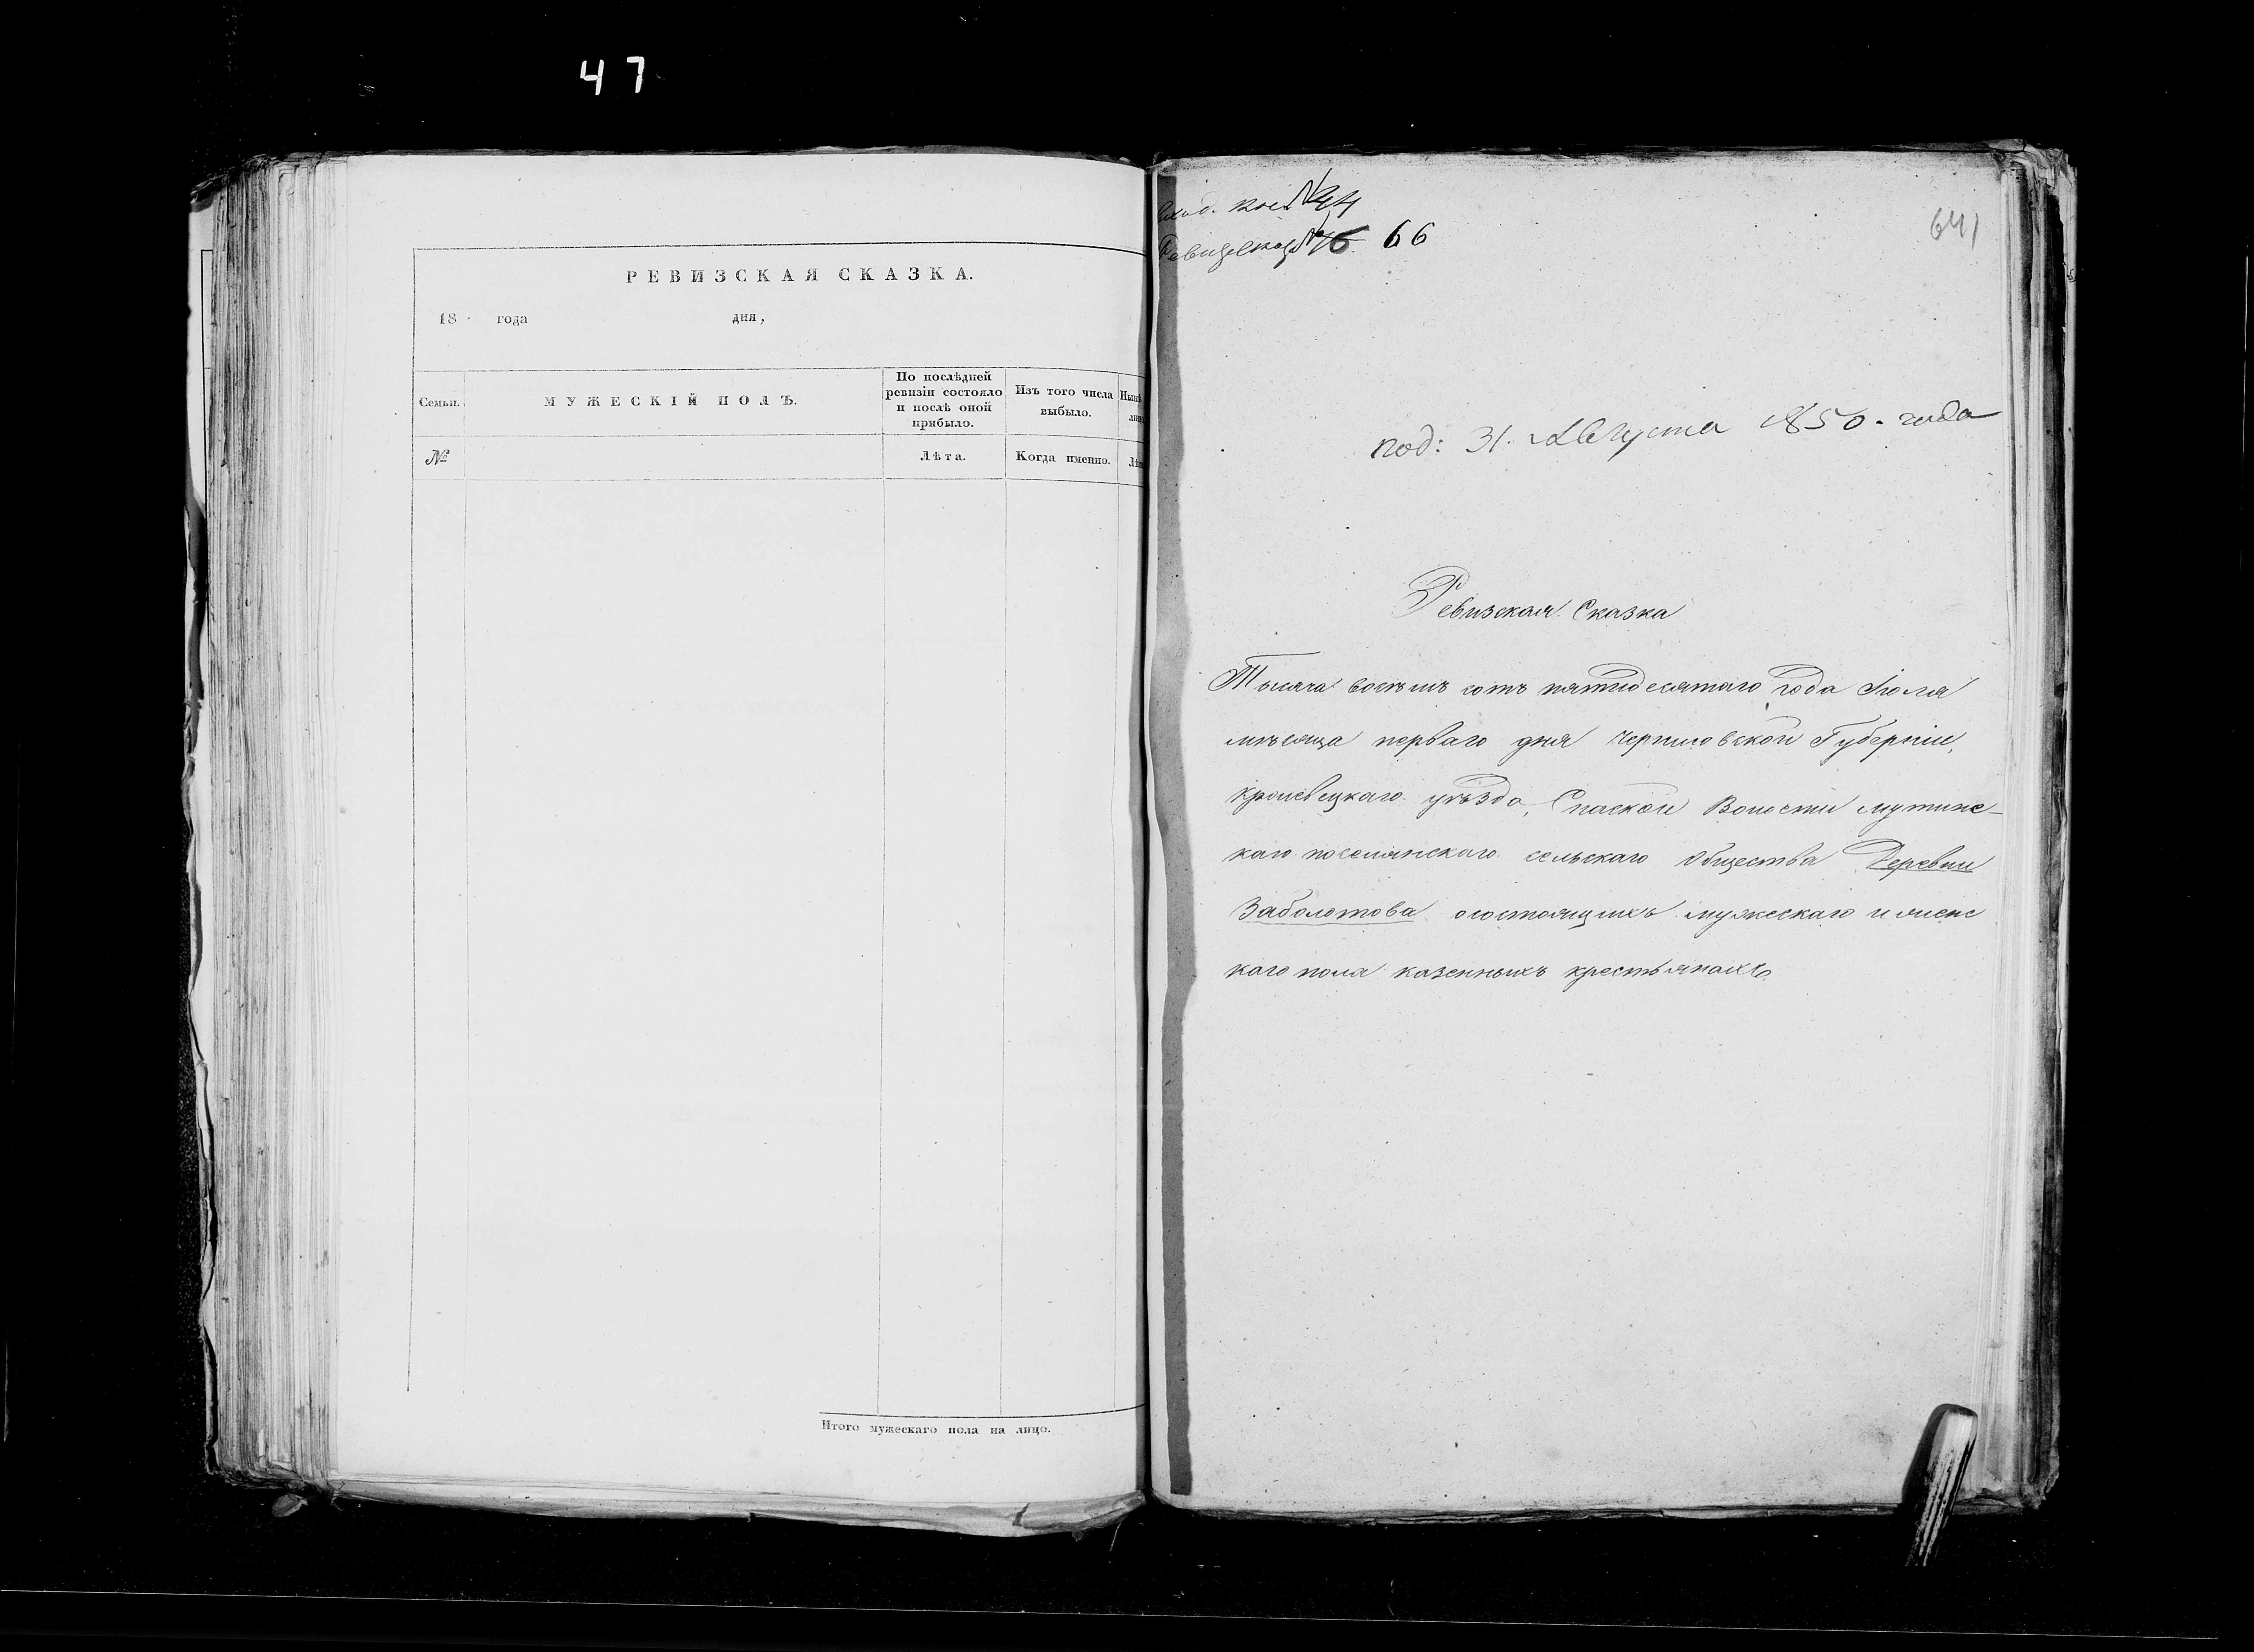 47
РЕВИЗСКАЯ СКАЗКА.
18 года дня,
Семьи. МУЖЕСКІЙ ПОЛЪ. По послѣдней ревизіи состояло и послѣ оной прибыло. Изъ того числа выбыло.
№ Лѣта. Когда именно.
Итого мужескаго пола на лицо.
№ 44
№ 66
641
под: 31. Августа 1850. года
Ревизская Сказка
Тысяча восемь сотъ пятидесятаго года Іюля
мѣсяца перваго дня Черниговской Губерніи,
кролевецкаго уѣзда, Спаской Волости мутинс-
каго поселянскаго сельскаго Общества Деревни
Заболотова о состоящихъ мужескаго и женс
каго пола казенныхъ крестьянахъ